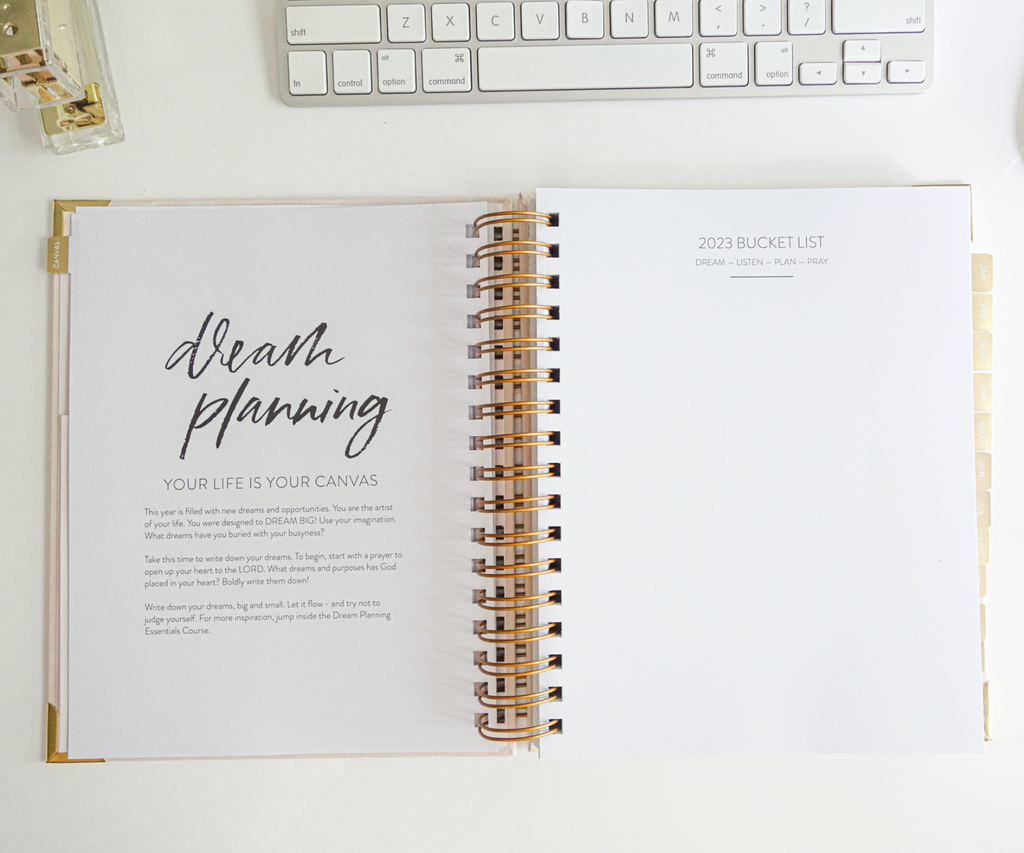 shift Z X C V B N M < , > . ? / shift
fn control alt option ⌘ command ⌘ command alt option
CANVAS
dream
planning
YOUR LIFE IS YOUR CANVAS
This year is filled with new dreams and opportunities. You are the artist
of your life. You were designed to DREAM BIG! Use your imagination.
What dreams have you buried with your busyness?
Take this time to write down your dreams. To begin, start with a prayer to
open up your heart to the LORD. What dreams and purposes has God
placed in your heart? Boldly write them down!
Write down your dreams, big and small. Let it flow – and try not to
judge yourself. For more inspiration, jump inside the Dream Planning
Essentials Course.
2023 BUCKET LIST
DREAM – LISTEN – PLAN – PRAY
JAN
JUN